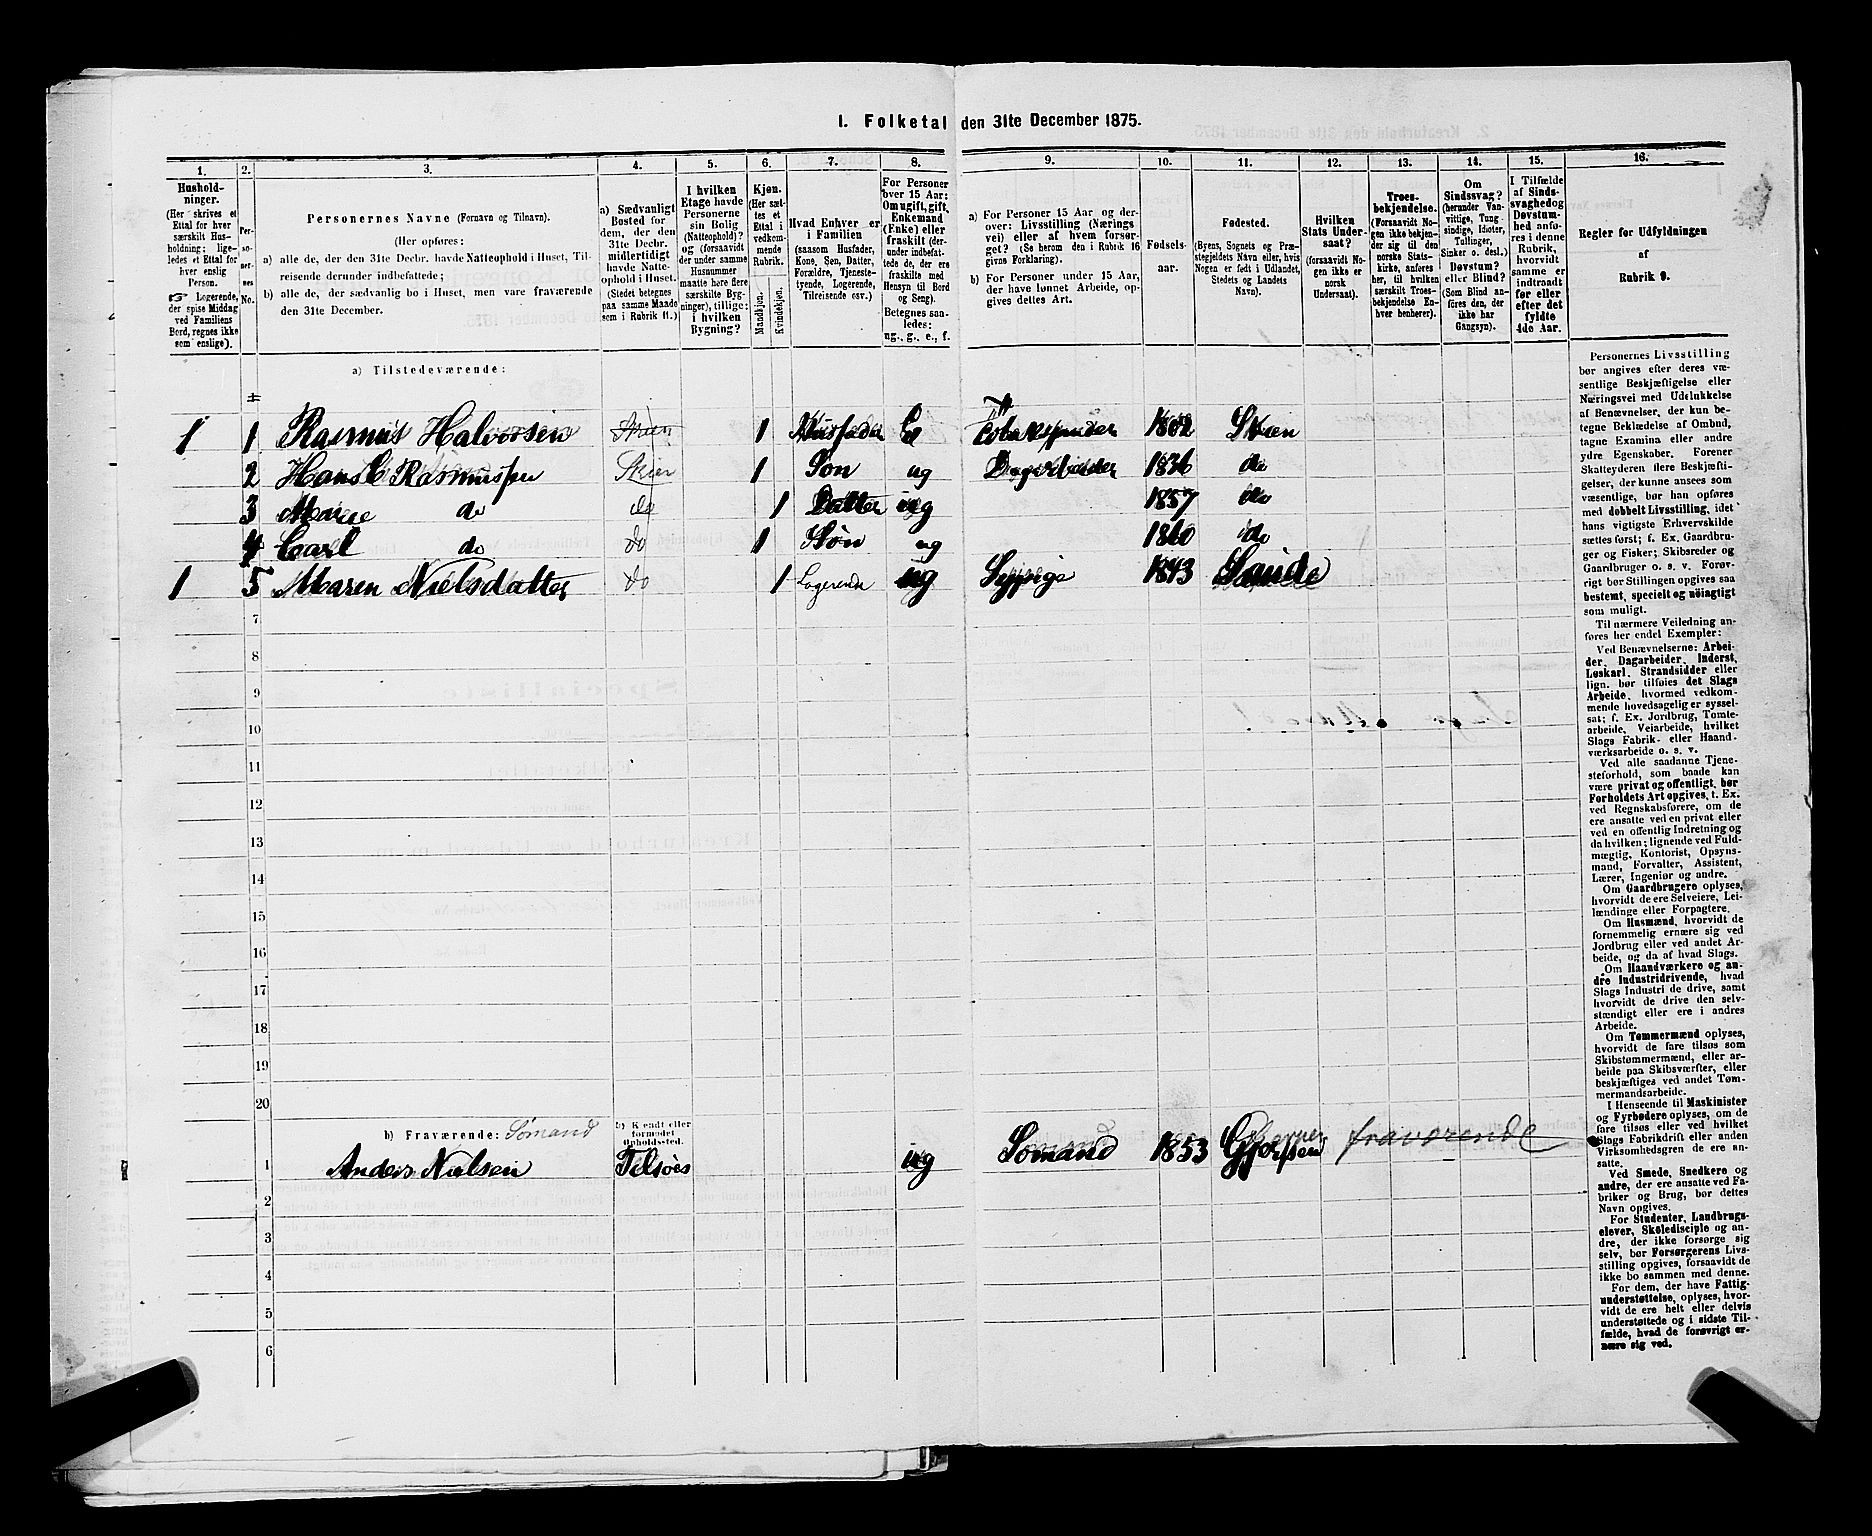 1. Folketal den 31te December 1875.
1.
2.
3.
4.
5.
6.
7.
8.
9.
10.
11.
12.
13.
14.
15.
16.
Hushold-
ninger.
(Her skrives et
Ettal for hver
særskilt Hus-
holdning; lige-
ledes et Ettal for
hver enslig
Person.
☞ Logerende,
der spise Middag
ved Familiens
Bord, regnes ikke
som enslige).
Per-
so-
ner-
nes
No.
Personernes Navne (Fornavn og Tilnavn).
(Her opføres:
a) alle de, der den 31te Decbr. havde Natteophold i Huset, Til-
reisende derunder indbefattede;
b) alle de, der sædvanlig bo i Huset, men vare fraværende
den 31te December.
a) Sædvanligt
Bosted for
dem, der den
31te Decbr.
midlertidigt
havde Natte-
ophold i Huset.
(Stedet betegnes
paa samme Maade
som i Rubrik 11.)
I hvilken
Etage havde
Personerne
sin Bolig
(Natteophold)?
og (forsaavidt
der under samme
Husnummer
maatte høre flere
særskilte Byg-
ninger), tillige:
i hvilken
Bygning?
Kjøn.
(Her sæt-
tes et
Ettal i
vedkom-
mende
Rubrik.
Mandkjøn.
Kvindekjøn.
Hvad Enhver er
i Familien
(saasom Husfader,
Kone, Søn, Datter,
Forældre, Tjeneste-
tyende, Logerende,
Tilreisende osv.)
For Personer
over 15 Aar:
Om ugift, gift,
Enkemand
(Enke) eller
fraskilt (der-
under indbefat-
tede de, der ere
fraskilte med
Hensyn til Bord
og Seng).
Betegnes saa-
ledes:
ug., g., e., f.
a) For Personer 15 Aar og der-
over: Livsstilling (Nærings-
vei) eller af hvem forsør-
get? (Se herom den i Rubrik 16
givne Forklaring).
b) For Personer under 15 Aar,
der have lønnet Arbeide, op-
gives dettes Art.
Fødsels-
aar.
Fødested.
(Byens, Sognets og Præ-
stegjeldets Navn eller, hvis
Nogen er født i Udlandet,
Stedets og Landets
Navn).
Hvilken
Stats Under-
saat?
(forsaavidt No-
gen ikke er
norsk
Undersaat).
Troes-
bekjendelse.
(Forsaavidt No-
gen ikke bekjen-
der sig til den
norske Stats-
kirke, anføres
her, til hvilken
særskilt Troes-
bekjendelse En-
hver henhører).
Om
Sindssvag?
(herunder Van-
vittige, Tung-
sindige, Idioter,
Tullinger,
Sinker o. desl.)
Døvstum?
eller Blind?
(Som Blind an-
føres den, der
ikke har
Gangsyn).
I Tilfælde
af Sinds-
svaghed og
Døvstum-
hed anfø-
res i denne
Rubrik,
hvorvidt
samme er
indtraadt
før eller
efter det
fyldte
4de Aar.
Regler for Udfyldningen
af
Rubrik 9.
a) Tilstedeværende:
1 1 Rasmus Halvorsen Skien 1 Husfader E Tobakspinder 1802 Skien
2 Hans C Rasmussen Skien 1 Søn ug Dagarbeider 1836 do
3 Marie do do 1 Datter ug 1857 do
4 Carl do do 1 Søn ug 1860 do
1 5 Maren Nielsdatter do 1 Logerende ug Sypige 1843 Sande
7
8
9
10
11
12
13
14
15
16
17
18
19
20
b) Fraværende: Sømand
b) Kjendt eller
formodet
Opholdssted.
1 Anders Nielsen Tilsøes ug Sømand 1853 Gjerpen fraværende
2
3
4
5
6
Personernes Livsstilling
bør angives efter deres væ-
sentlige Beskjæftigelse eller
Næringsvei med Udelukkelse
af Benævnelser, der kun be-
tegne Beklædelse af Ombud,
tagne Examina eller andre
ydre Egenskaber. Forener
Skatteyderen flere Beskjæfti-
gelser, der kunne ansees som
væsentlige, bør han opføres
med dobbelt Livsstilling, idet
hans vigtigste Erhvervskilde
sættes først; f. Ex. Gaardbru-
ger og Fisker; Skibsreder og
Gaardbruger o. s. v. Forøv-
rigt bør Stillingen opgives saa
bestemt, specielt og nöiagtigt
som muligt.
Til nærmere Veiledning an-
føres her endel Exempler:
Ved Benævnelserne: Arbei-
der, Dagarbeider, Inderst,
Løskarl, Strandsidder eller
lign. bør tilføies det Slags
Arbeide, hvormed vedkom-
mende hovedsagelig er syssel-
sat; f. Ex. Jordbrug, Tomte-
arbeide, Veiarbeide, hvilket
Slags Fabrik- eller Haand-
værksarbeide o. s. v.
Ved alle saadanne Tjene-
steforhold, som baade kan
være privat og offentligt, bør
Forholdets Art opgives, t. Ex.
ved Regnskabsførere, om de
ere ansatte ved en privat eller
ved en offentlig Indretning og
da hvilken; lignende ved Fuld-
mægtig, Kontorist, Opsyns-
mand, Forvalter, Assistent,
Lærer, Ingeniør og andre.
Om Gaardbrugere oplyses,
hvorvidt de ere Selveiere, Lei-
lændinge eller Forpagtere.
Om Husmænd, hvorvidt de
fornemmelig ernære sig ved
Jordbrug eller ved andet Ar-
beide, og da af hvad Slags.
Om Haandværkere og an-
dre Industridrivende, hvad
Slags Industri de drive, samt
hvorvidt de drive den selv-
stændigt eller ere i andres
Arbeide.
Om Tømmermænd oplyses,
hvorvidt de fare tilsøs som
Skibstømmermænd, eller ar-
beide paa Skibsværfter, eller
beskjæftiges ved andet Tøm-
mermandsarbeide.
I Henseende til Maskinister
og Fyrbødere oplyses, om de
fare tilsøs eller ved hvilket
Slags Fabrikdrift eller anden
Virksomhedsgren de ere an-
satte.
Ved Smede, Snedkere og
andre, der ere ansatte ved Fa-
briker og Brug, bør dettes
Navn opgives.
For Studenter, Landbrugs-
elever, Skoledisciple og an-
dre, der ikke forsørge sig
selv, bør Forsørgerens Livs-
stilling opgives, forsaavidt de
ikke bo sammen med denne.
For dem, der have Fattig-
understøttelse, oplyses, hvor-
vidt de ere helt eller delvis
understøttede og i sidste Til-
fælde, hvad de forøvrigt er-
nære sig ved.